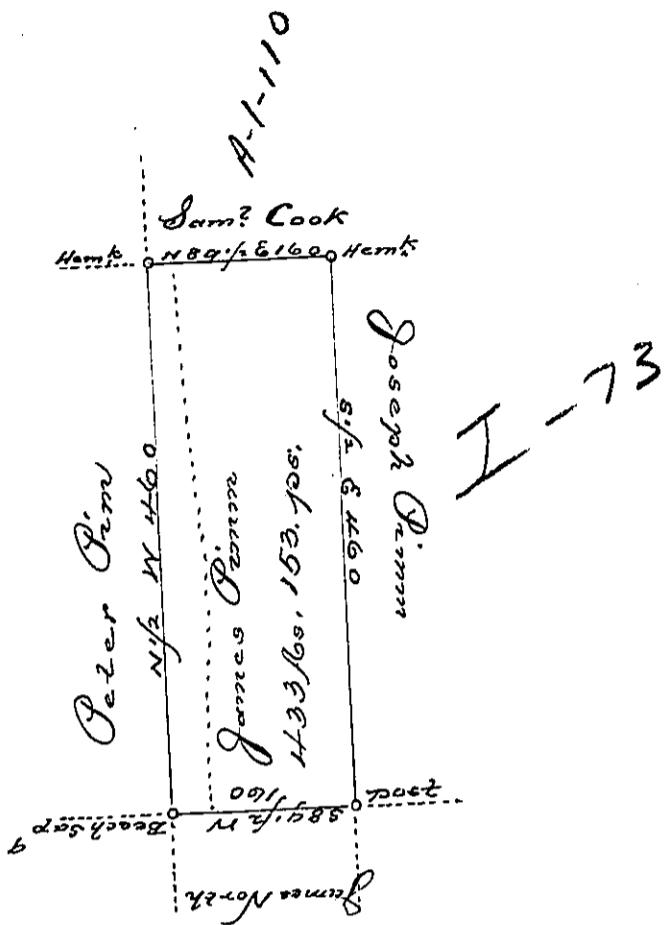 A-1-110
Sam? Cook
Hemk
N 89 1/2 E 160
Hemk
Joseph Pimm
I-73
S 1/2 E 460
Peter Pim
N 1/2 W 460
James Pimm
433 As. 153. ps.
S 89 1/2 W
160
Beach Sap
Post
James North